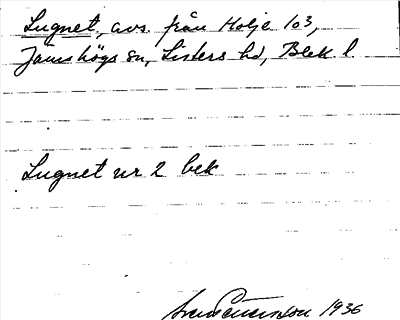 Lugnet, avs. från Holje 103,
Jämshögs sn, Listers hd, Blek l
Lugnet nr 2 bek
1936